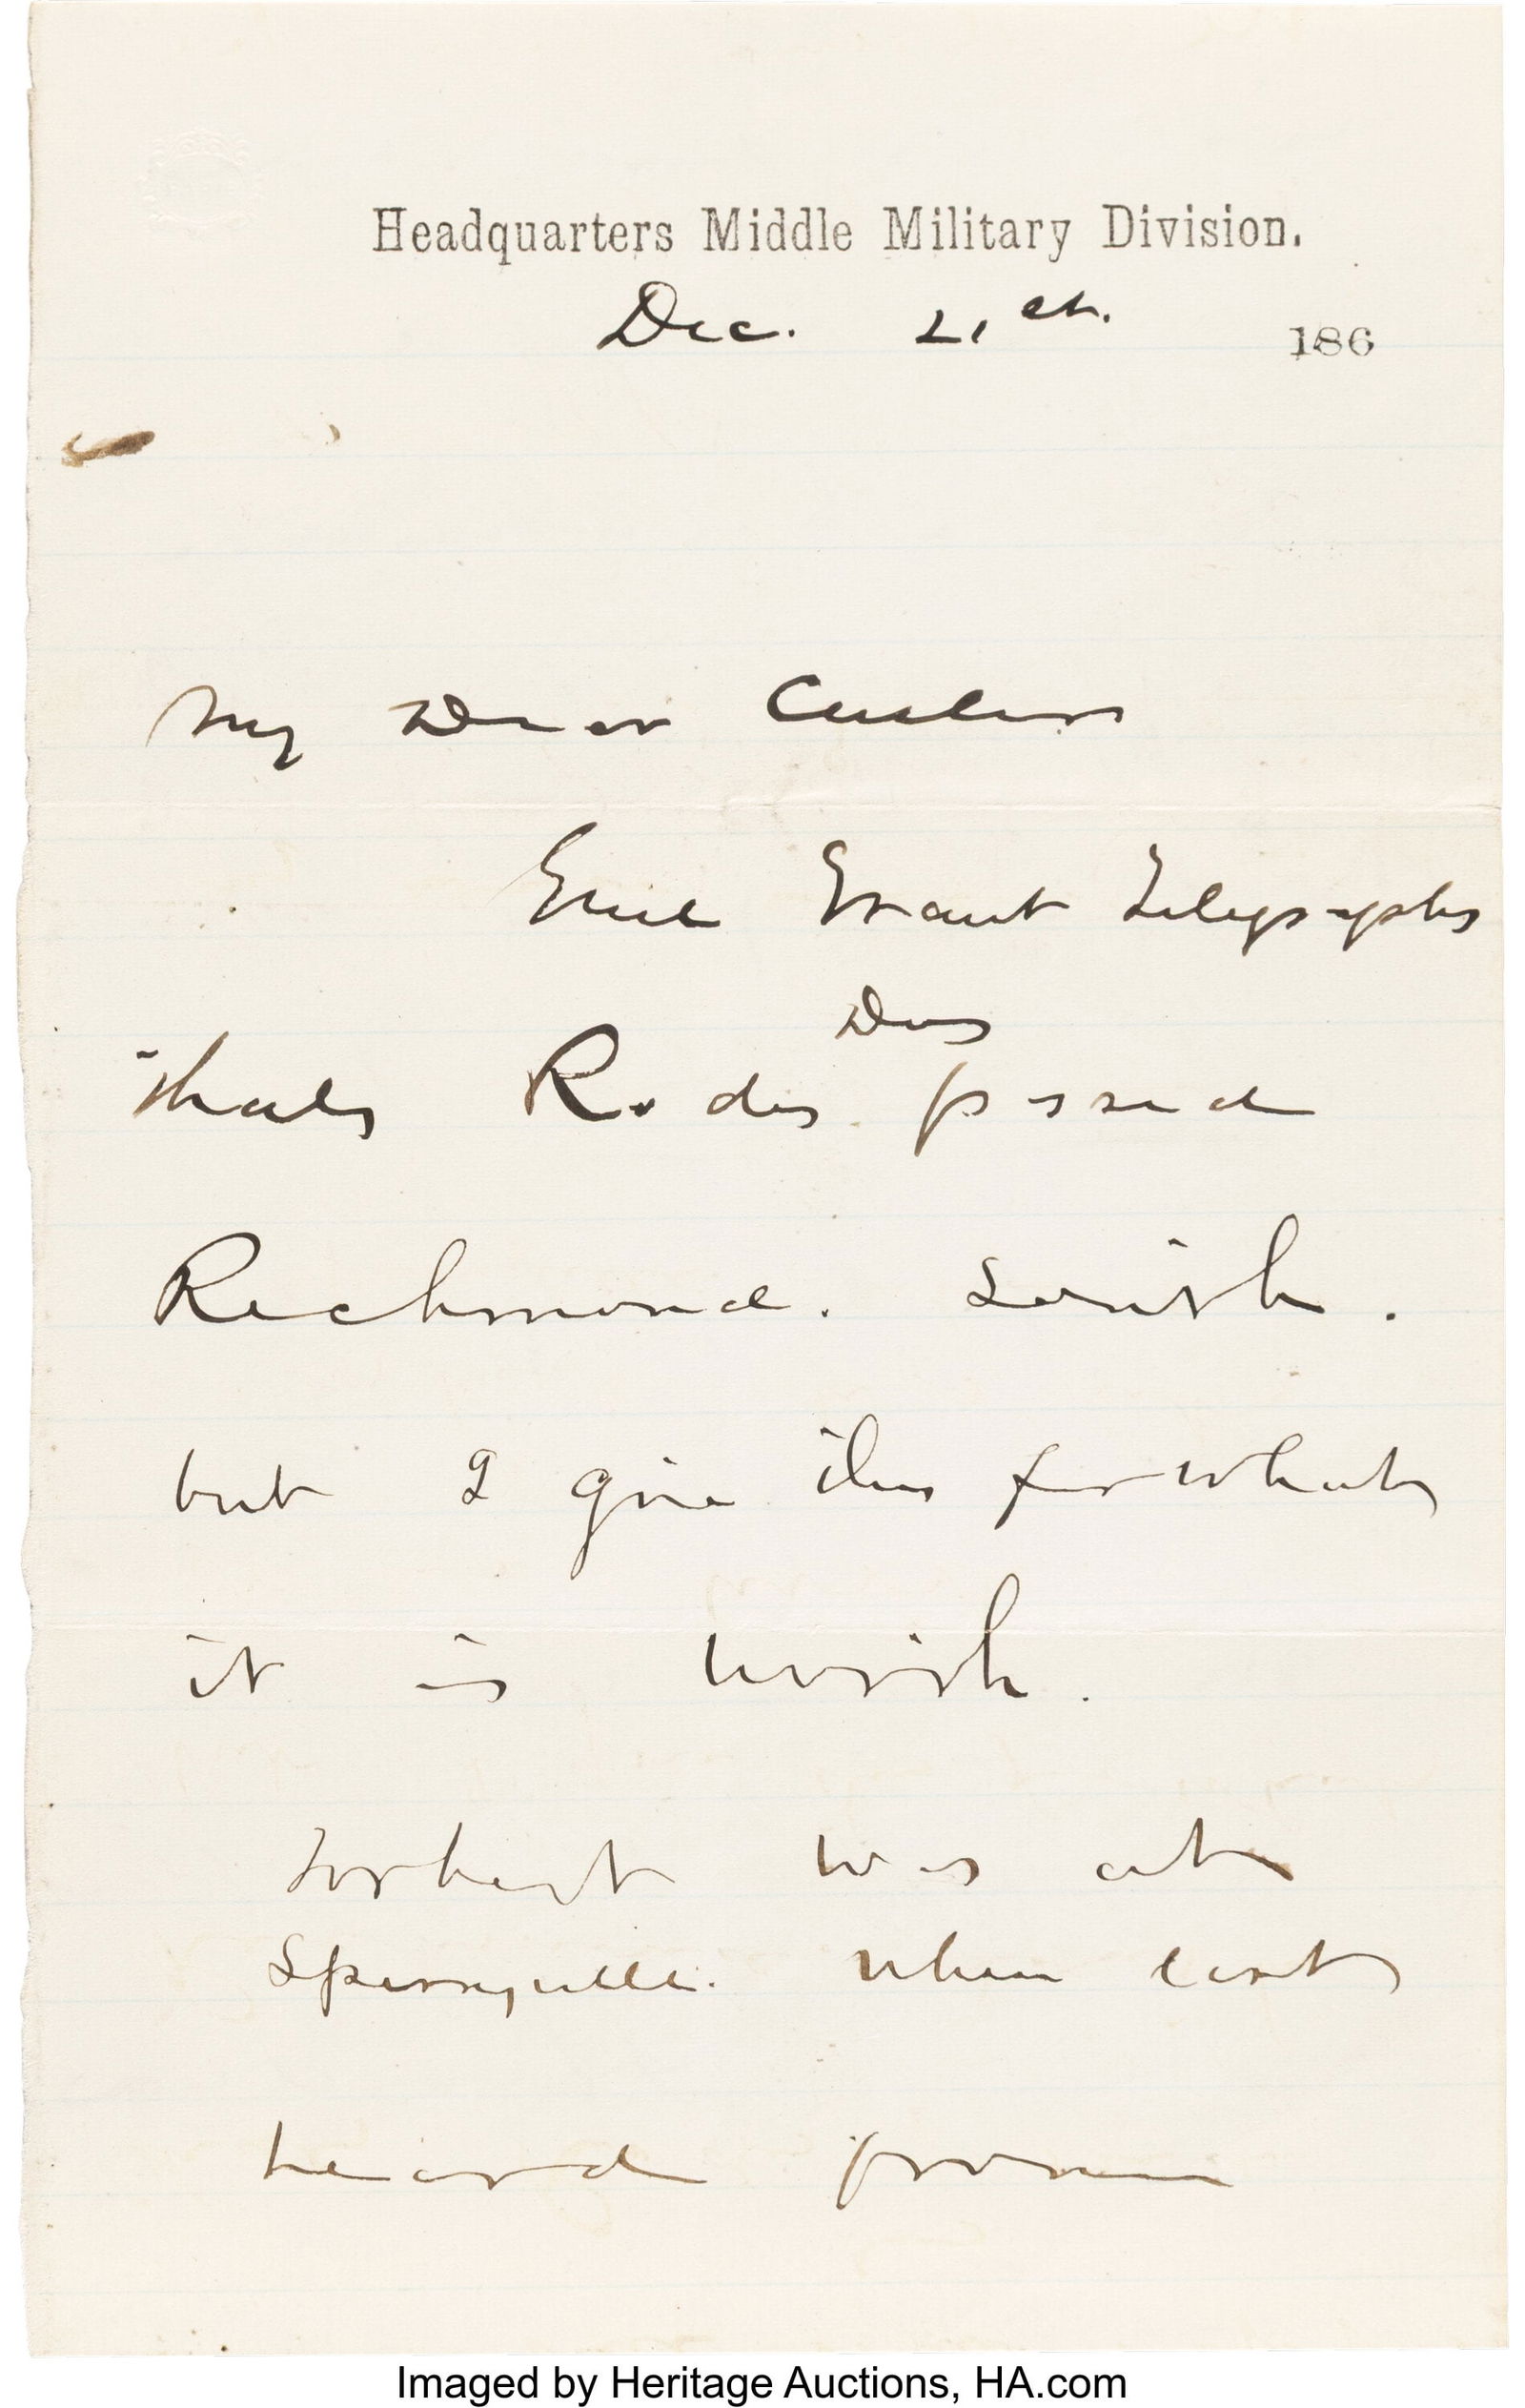 Headquarters Middle Military Division.
Dec. 21st. 186
My Dear Custer
Genl Grant Telegraphs
Div
that Rodes passed
Richmond. South.
but I give this for what
it is worth.
Torbert was at
Sperryville. when last
heard from
Imaged by Heritage Auctions, HA.com